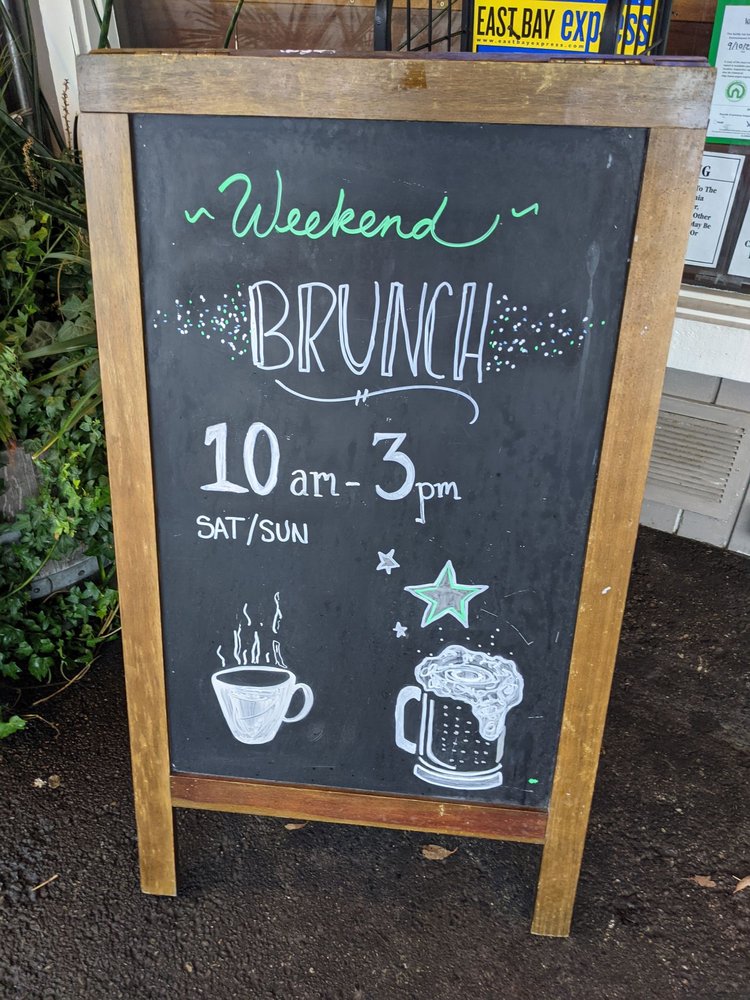 EAST BAY express
www.eastbayexpress.com
9/10/2
G
To The
nia
r.
Other
May Be
Or
~ Weekend ~
BRUNCH
10 am - 3 pm
SAT/SUN